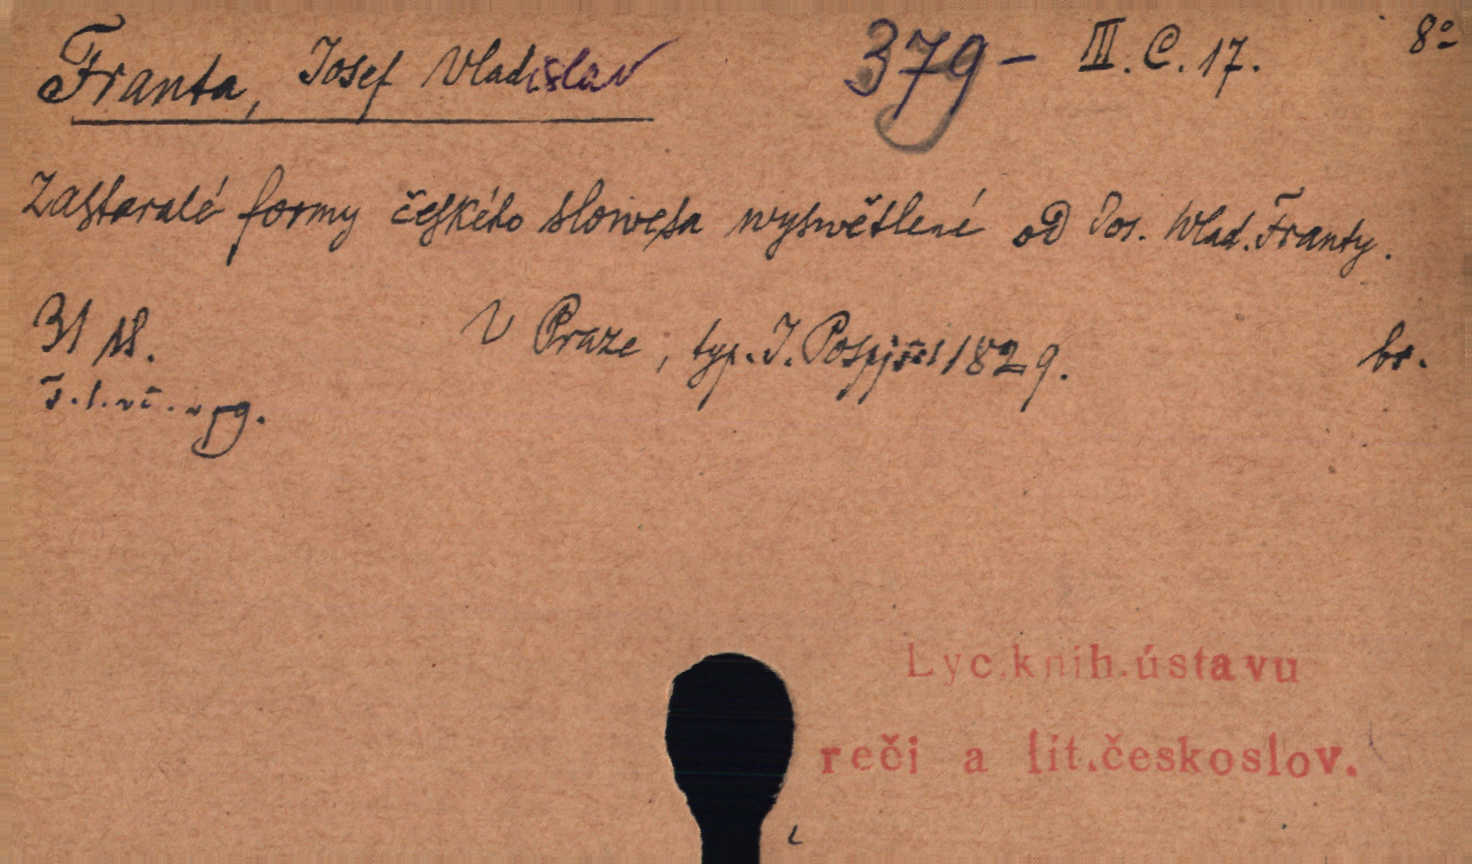 Franta, Josef Vladislav 379 – III. C. 17. 8º
Zastaralé formy českého slowesa wyswětlené od Jos. Wlad. Franty.
31 s. V Praze, typ. J. Pospjšil 1829. br.
Lyc. knih. ústavu
reči a lit. českoslov.